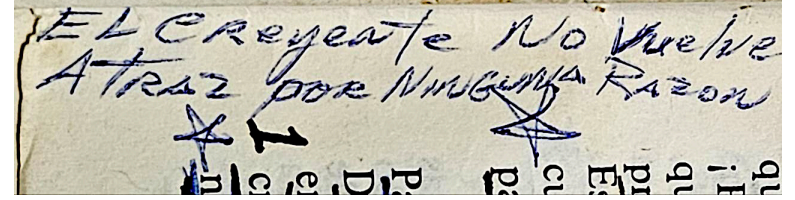 EL CReyente No Vuelve
ATRAZ poR NINGUNA RAZON
1